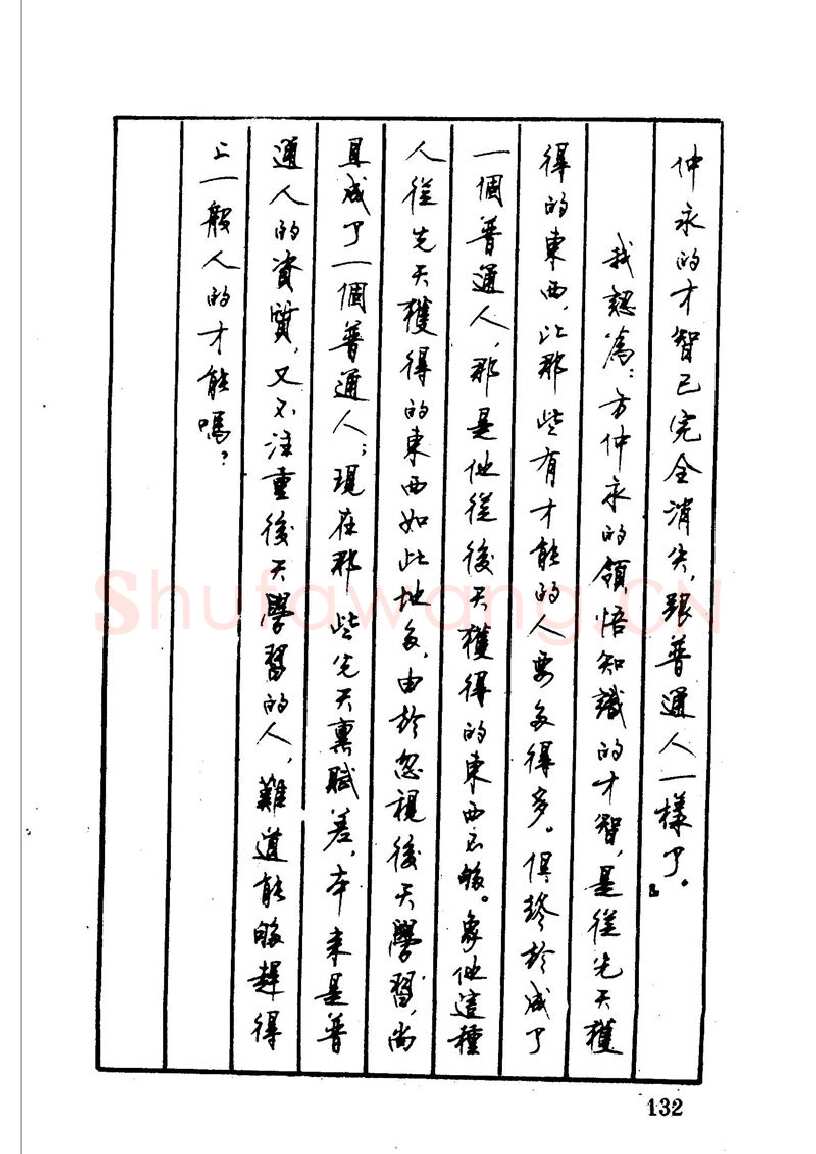 仲永的才智已完全消失，跟普通人一樣了。』
我認為：方仲永的領悟知識的才智，是從先天獲
得的東西，比那些有才能的人要多得多。但終於成了
一個普通人，那是他從後天獲得的東西不够。象他這種
人從先天獲得的東西如此地多，由於忽視後天學習，尚
且成了一個普通人；現在那些先天禀賦差，本来是普
通人的資質，又不注重後天學習的人，難道能够趕得
上一般人的才能嗎？
132
Shufawang.CN